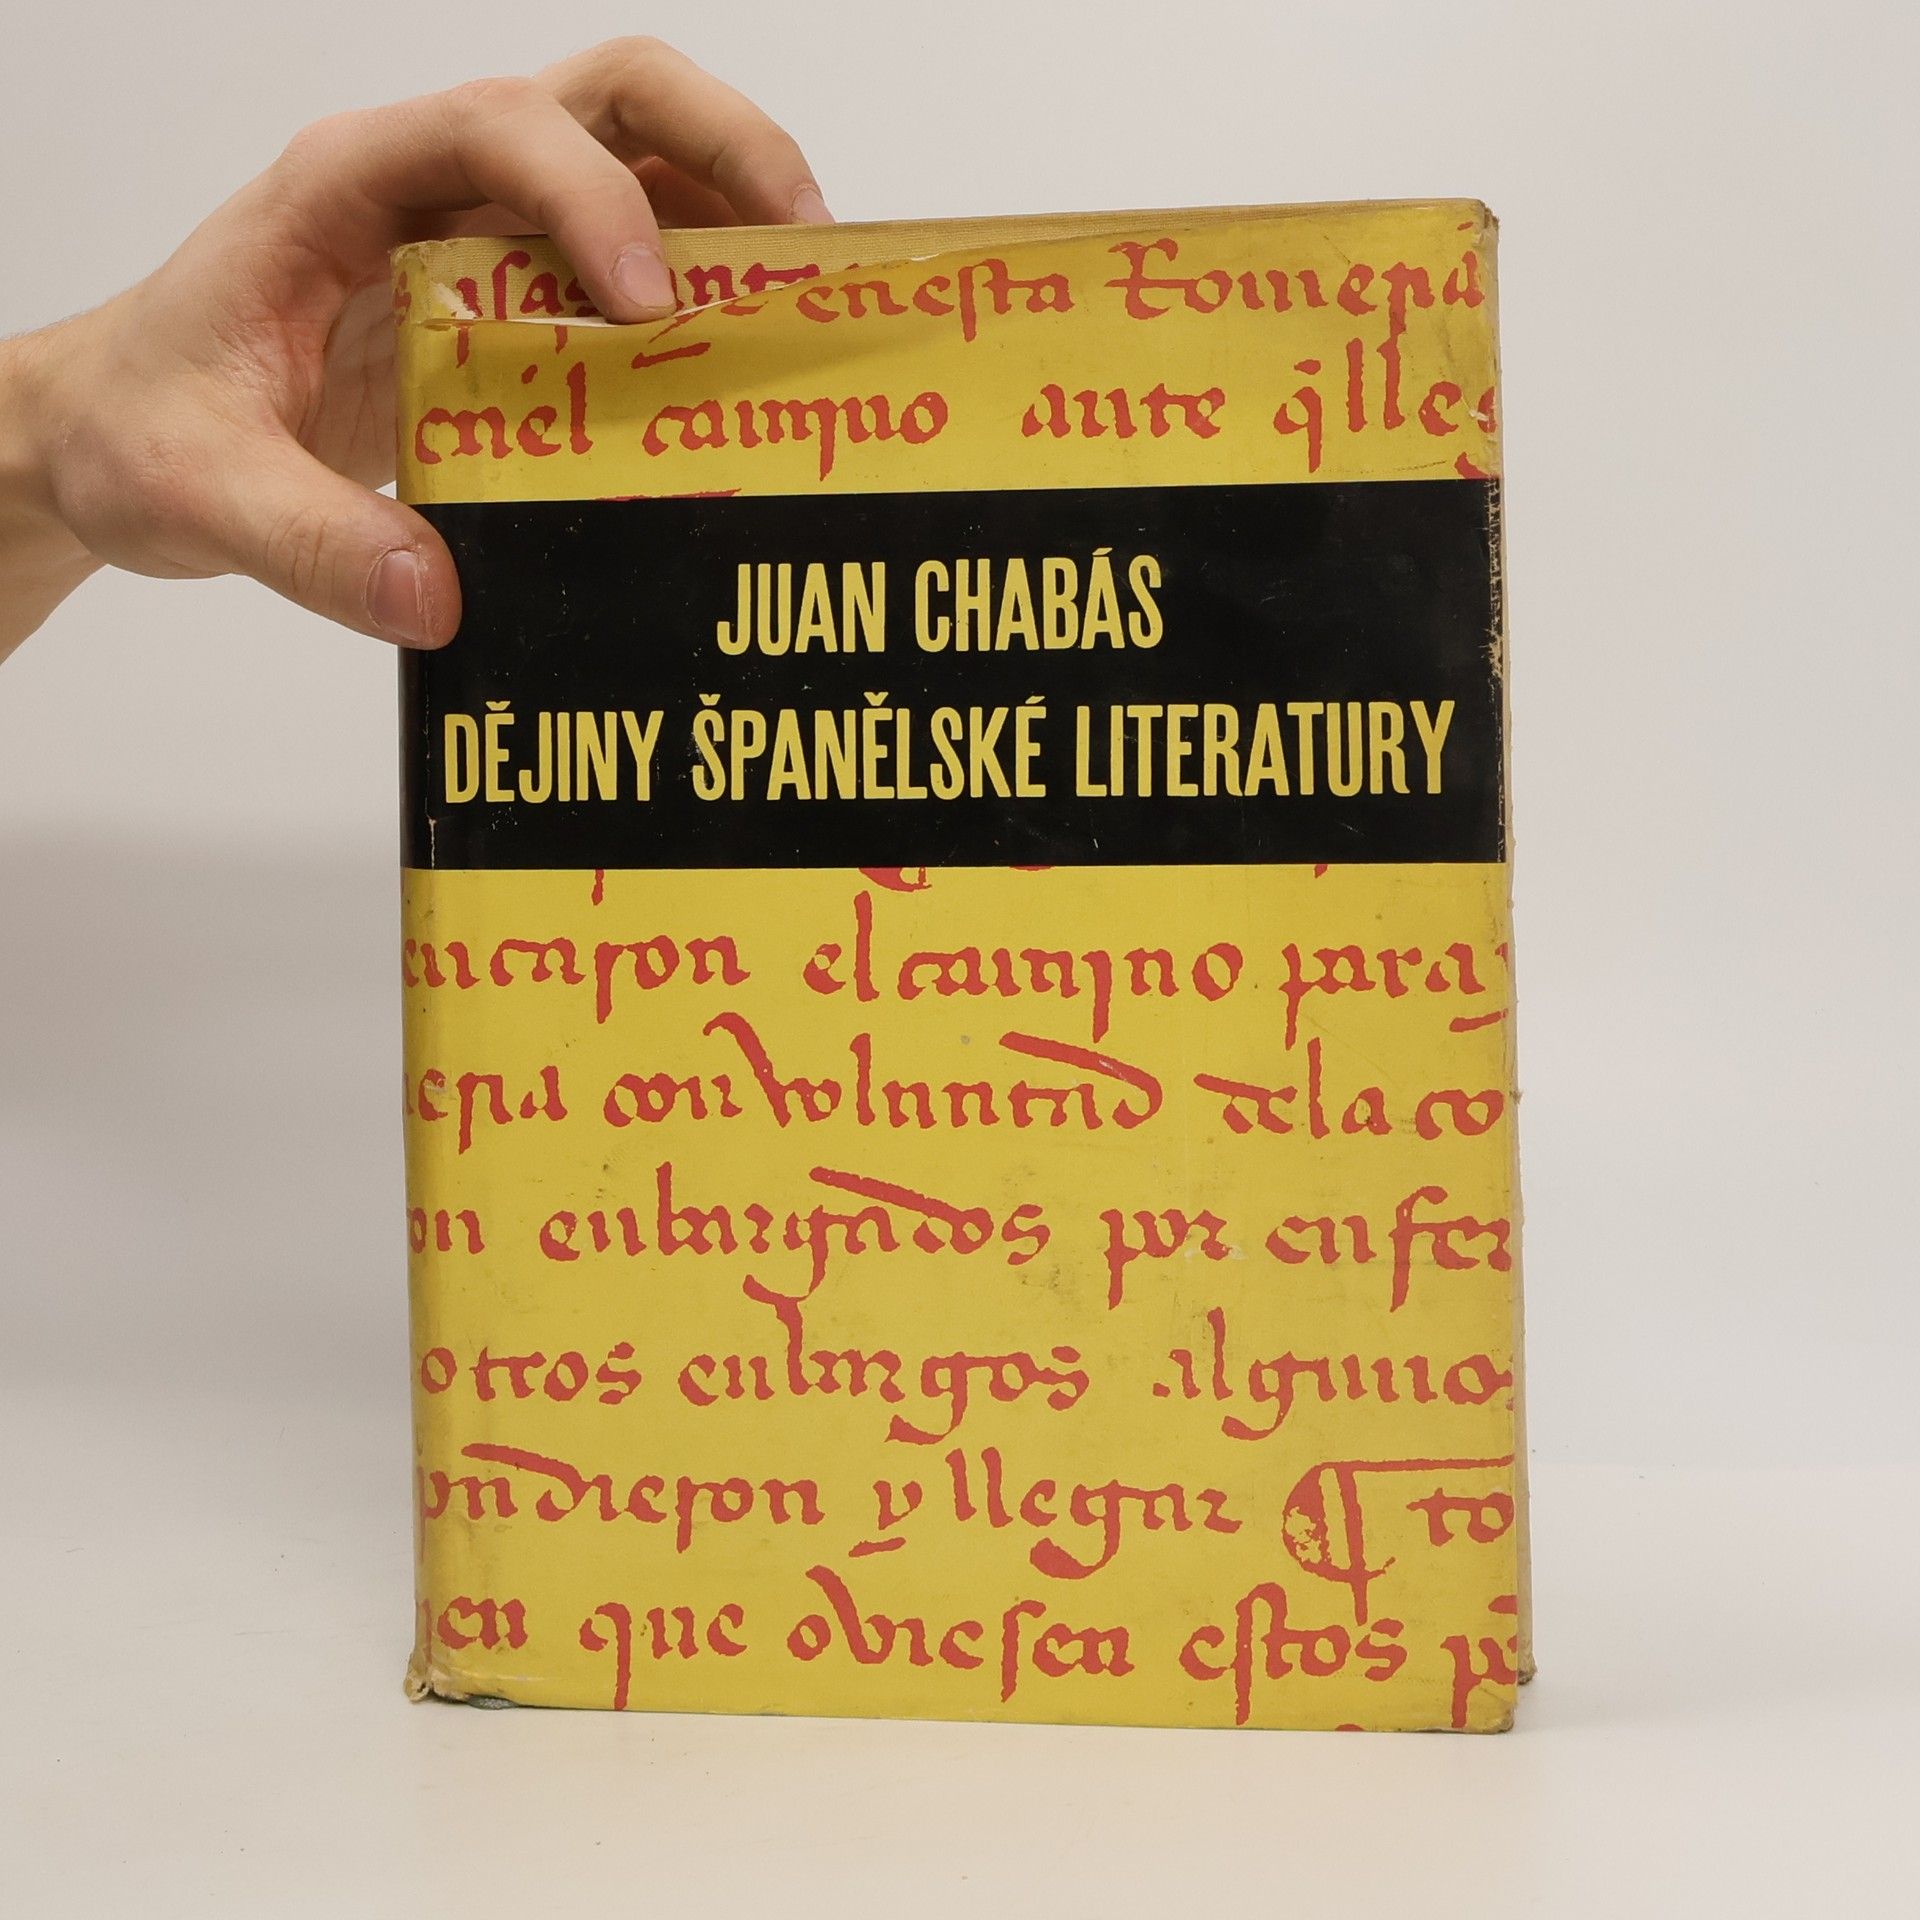 enesta Romeria
enel camino ante q̃lleg
JUAN CHABÁS
DĚJINY ŠPANĚLSKÉ LITERATURY
el camino para
con voluntad dela co
enbargados por enfer
otros enbargos algunos
ondieron y llegar ¶ to
en que oviesen estos